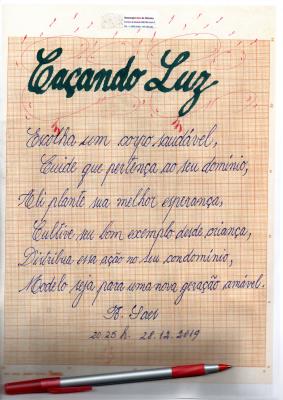 Caçando Luz
Escolha um corpo saudável,
Cuide que pertença ao seu domínio,
Ali plante sua melhor esperança,
Cultive su bom exemplo desde criança,
Distribua essa ação no seu condomínio,
Modelo seja para uma nova geração amável.
20:25 h. 28.12.2019